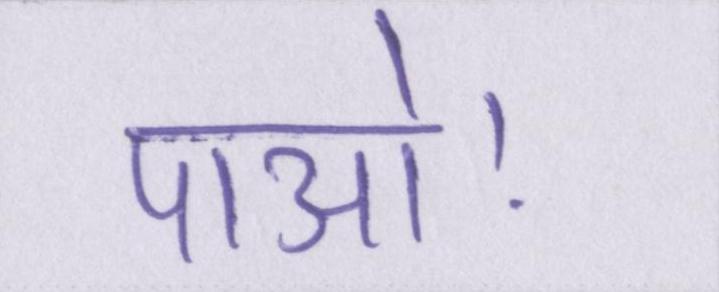 पाओ!